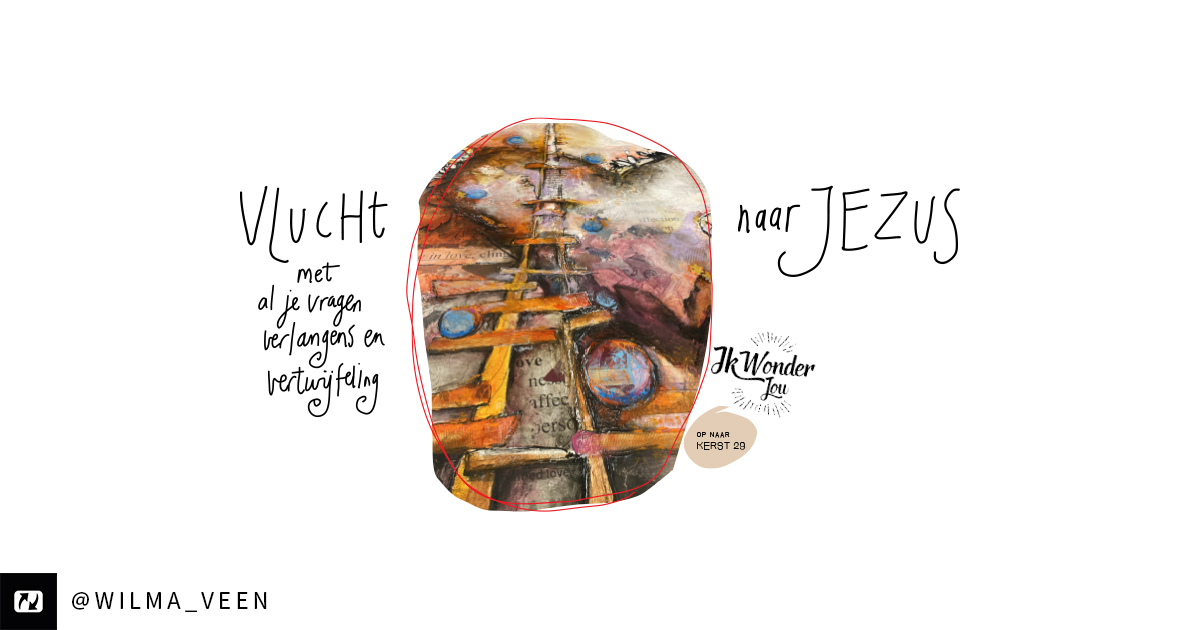 VLUCHT
met
al je vragen
verlangens en
vertwijfeling
naar JEZUS
in love, cling
love
affec
perso
love
Ik Wonder
Jou
OP NAAR
KERST 29
@WILMA_VEEN